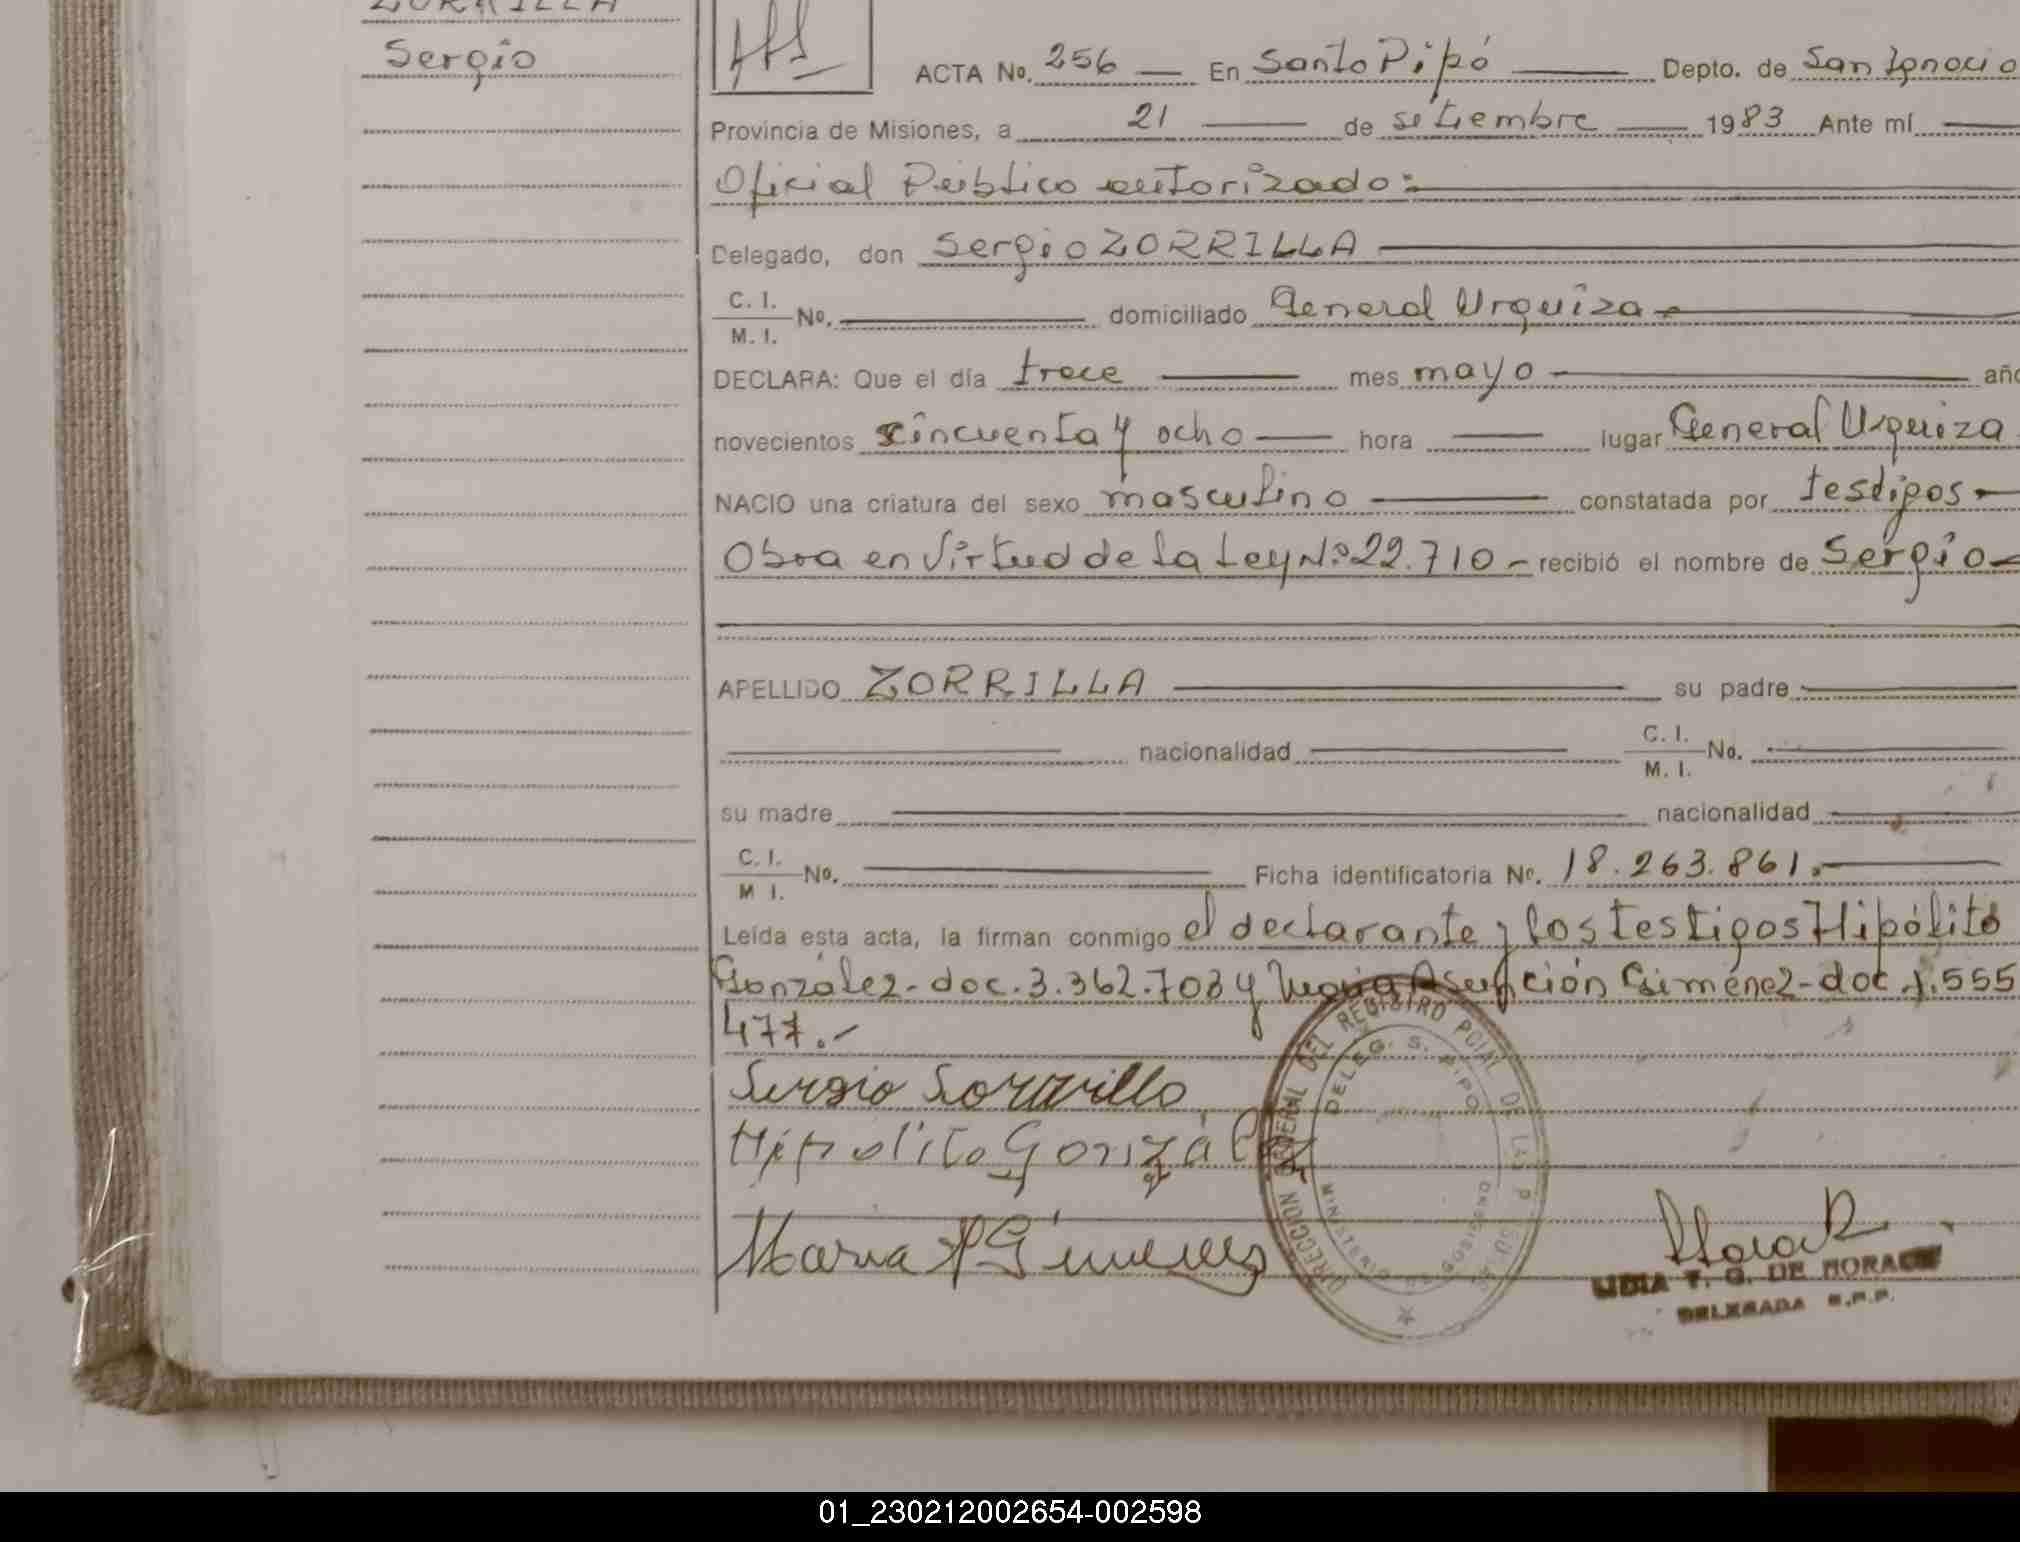 ZORRILLA
Sergio
ACTA No. 256 — En Santo Pipó — Depto. de San Ignacio
Provincia de Misiones, a 21 — de setiembre — 1983 Ante mí —
Oficial Público autorizado:
Delegado, don Sergio ZORRILLA
C. I.
M. I. No. — domiciliado General Urquiza.-
DECLARA: Que el día trece — mes mayo — año
novecientos cincuenta y ocho — hora — lugar General Urquiza
NACIO una criatura del sexo masculino — constatada por testigos-
Obra en Virtud de la Ley N:º 22.710 - recibió el nombre de Sergio-
APELLIDO ZORRILLA — su padre —
— nacionalidad — C. I. M. I. No. —
su madre — nacionalidad —
C. I. M I. No. — Ficha identificatoria No. 18.263.861.-
Leída esta acta, la firman conmigo el declarante y los testigos Hipólito
González- doc. 3.362.703 y María Asunción Giménez- doc 1.555
477.-
Sergio Sorrillo
Hipolito González
Maria A Gimenez
DIRECCION GENERAL DEL REGISTRO PCIAL DE LAS PERSONAS
DELEG. S. PIPO
MINISTERIO DE GOBIERNO
LIDIA T. G. DE MORA
DELEGADA R.P.P.
01_230212002654-002598